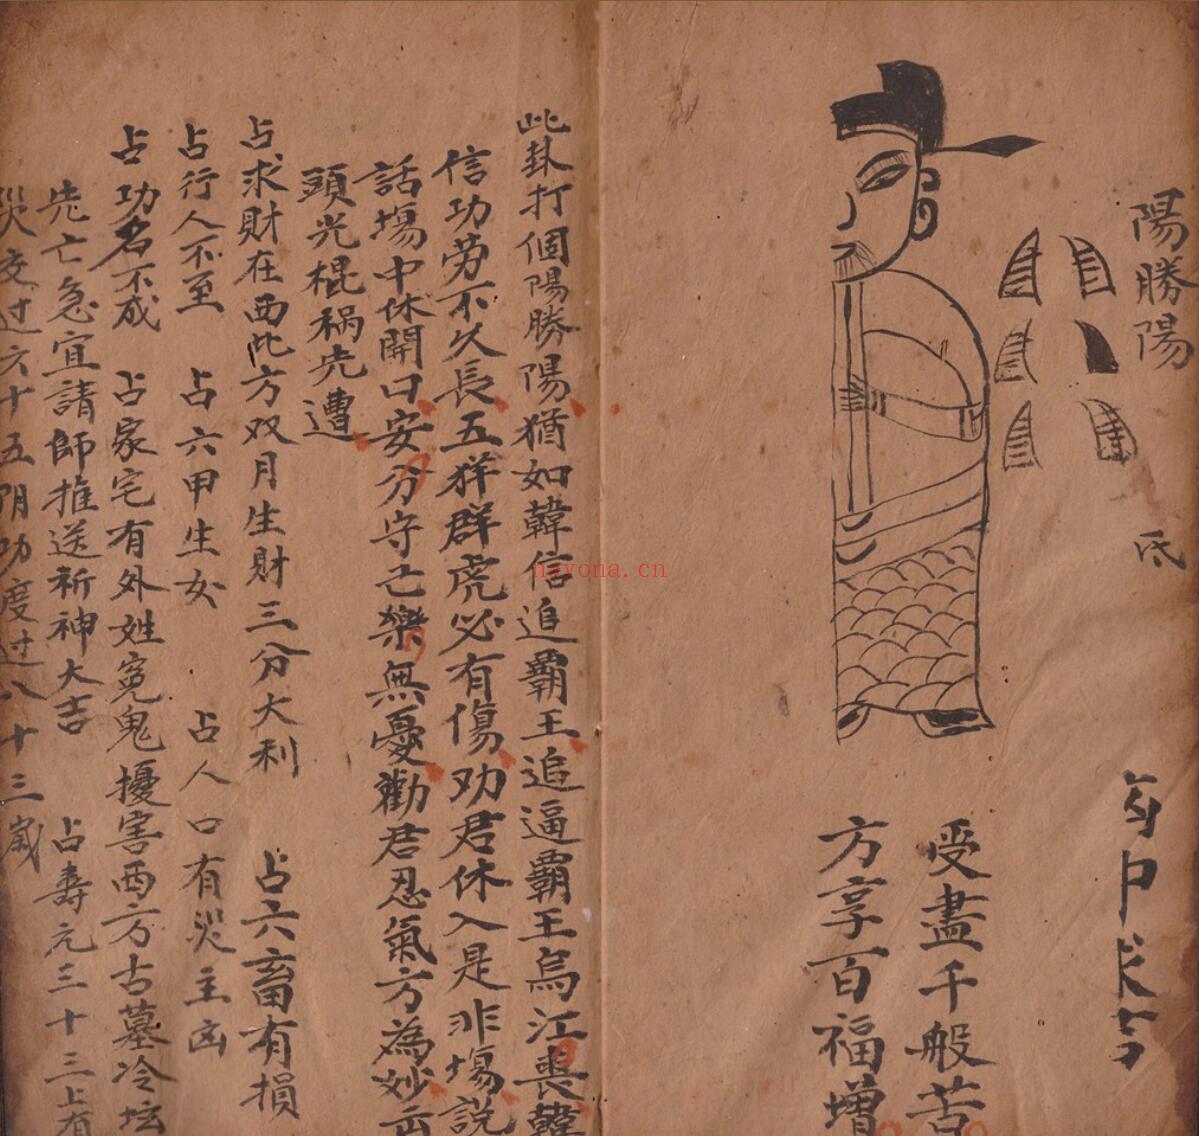 陽勝陽
氏
受盡千般苦
方享百福增
此卦打個陽勝陽猶如韓信追霸王追逼霸王烏江喪韓
信功劳不久長五羊群虎必有傷劝君休入是非場說
話塲中休開口安分守己樂無憂勸君忍氣方為妙云
頭光棍禍先遭
占求財在西北方双月生財三分大利 占六畜有損
占行人不至 占六甲生女 占人口有災主凶
占功名不成 占家宅有外姓寃鬼擾害西方古墓冷坛
先亡急宜請師推送祈神大吉 占壽元三十三上有
災交过六十五阴功度过八十三歲
nayona.cn